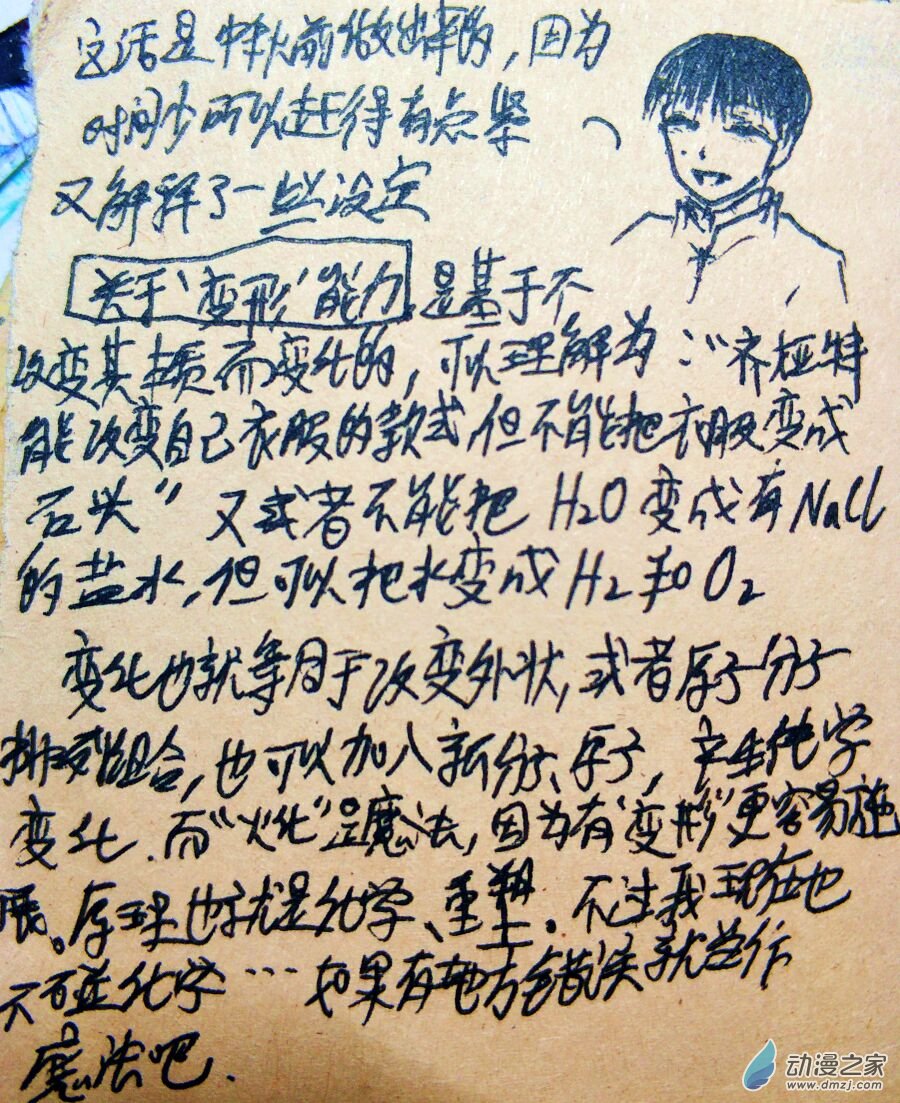 这话是中秋前做出来的，因为
时间少所以赶得有点紧
又解释了一些设定
关于'变形'能力，是基于不
改变其本质而变化的，可以理解为："齐桠特
能改变自己衣服的款式，但不能把衣服变成
石头"又或者不能把H2O变成有NaCl
的盐水，但可以把水变成H2和O2
变化也就等同于改变外状，或者原子分子
排列或组合，也可以加入新分子、原子，产生化学
变化．而"火化"是魔法，因为有'变形'更容易施
展。原理也就是化学、重塑。不过我现在也
不碰化学…如果有地方错误就当作
魔法吧．
动漫之家
www.dmzj.com